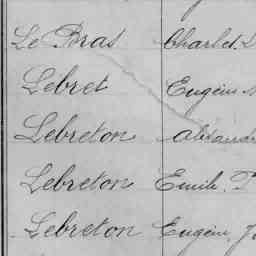 Le Bras Charles
Lebret Eugène
Lebreton Alexand
Lebreton Emile
Lebreton Eugène